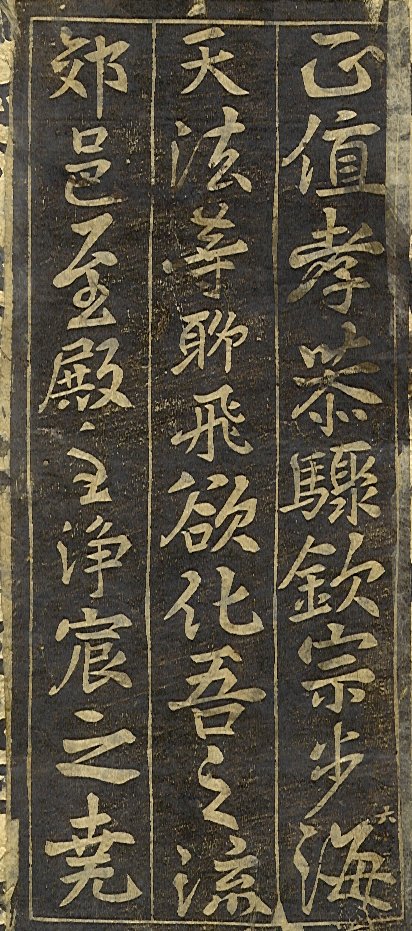 正值孝恭驟欽宗步海
天法等聊飛欲化吾之流
郊邑至殿主淨宸之堯
六